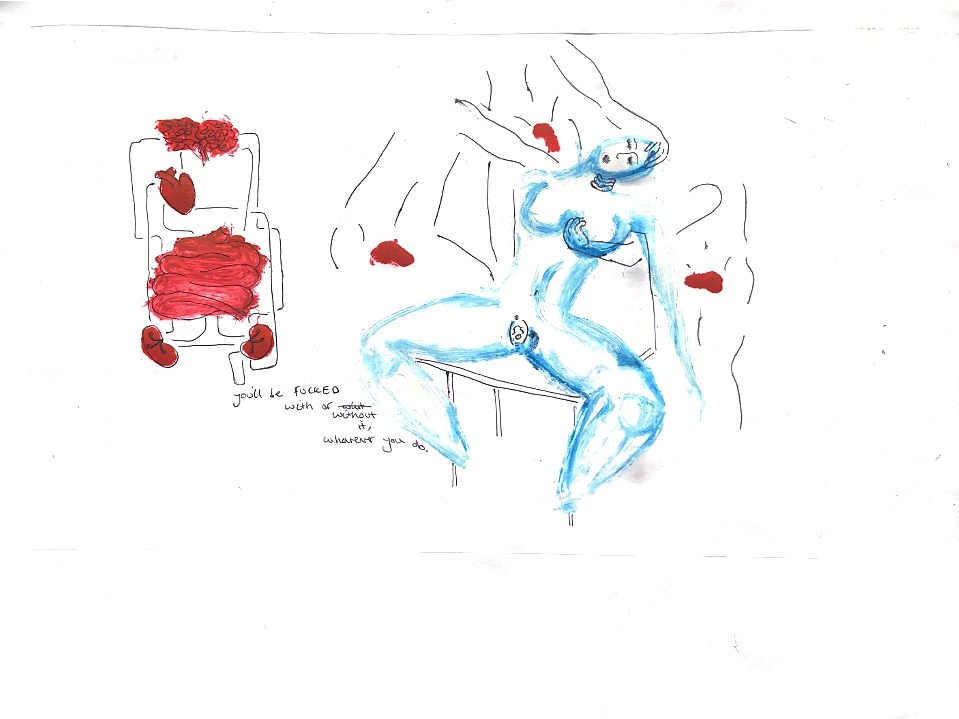 you'll be FUCKED
with or
without
it,
whatever you do.